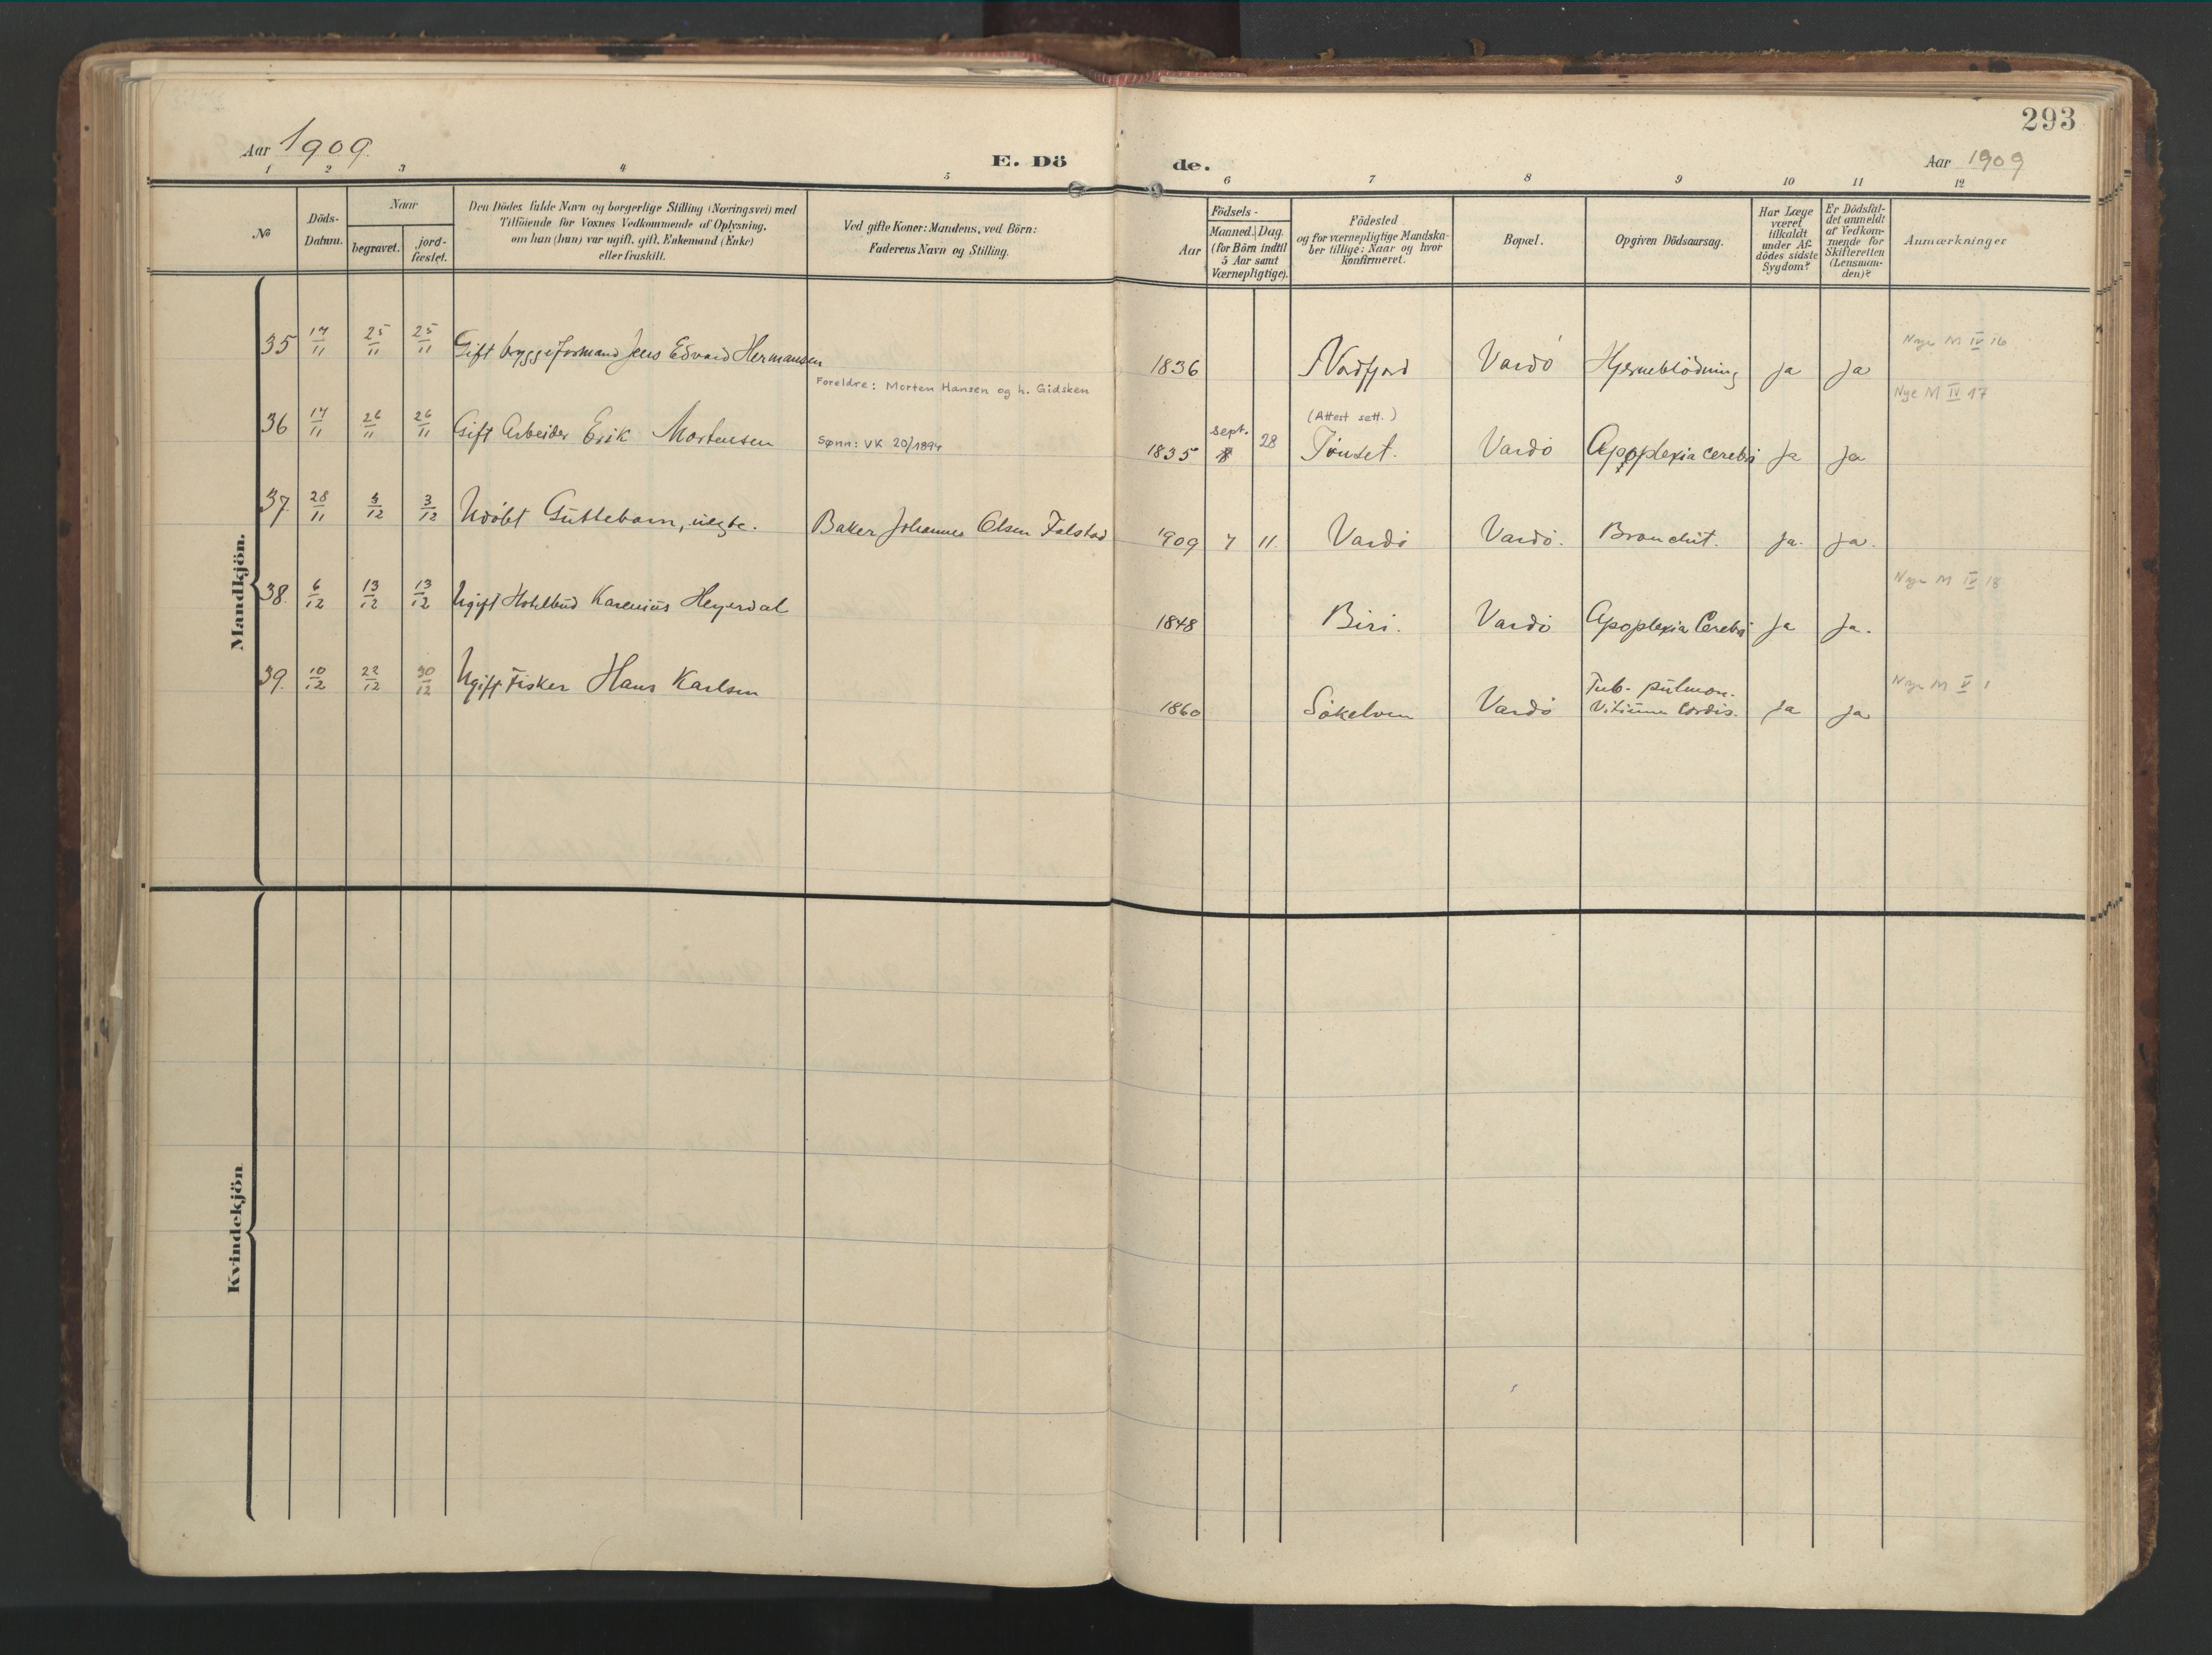 293
Aar 1909
E. Dö
de.
Aar 1909
1 2 3 4 5 6 7 8 9 10 11 12
No
Döds-
Datum.
Naar
begravet.
jord-
fæstet.
Den Dödes fulde Navn og borgerlige Stilling (Næringsvei) med
Tilföiende for Voxnes Vedkommende af Oplysning,
om han (hun) var ugift, gift, Enkemand (Enke)
eller fraskilt.
Ved gifte Koner: Mandens, ved Börn:
Faderens Navn og Stilling.
Födsels-
Aar
Maaned. Dag.
(for Börn indtil
5 Aar samt
Værnepligtige).
Födested
og for værnepligtige Mandska-
ber tillige: Naar og hvor
konfirmeret.
Bopæl.
Opgiven Dödsaarsag.
Har Læge
været
tilkaldt
under Af-
dödes sidste
Sygdom?
Er Dödsfal-
det anmeldt
af Vedkom-
mende for
Skifteretten
(Lensman-
den)?
Anmærkninger
Mandkjön.
35 17/11 25/11 25/11 Gift bryggeformand Jens Edvard Hermansen 1836 Nordfjord Vardö Hjerneblödning ja ja Nye M IV 16
Foreldre: Morten Hansen og h. Gidsken
Nye M IV 17
(Attest sett.)
36 17/11 26/11 26/11 Gift Arbeider Erik Mortensen Sønn: VK 20/1894 1835 sept. 28 Tönset. Vardö Apoplexia cerebri ja ja
37. 28/11 3/12 3/12 Udöbt Guttebarn, uegte. Baker Johannes Olsen Falstad 1909 7 11. Vardö Vardö. Bronchit. ja. ja.
38. 6/12 13/12 13/12 Ugift Hotelbud Karenius Heyerdal 1848 Biri. Vardö Apoplexia Cerebri ja ja. Nye M IV 18
39. 10/12 22/12 30/12 Ugift Fisker Hans Karlsen 1860 Sökelven Vardö Tub. pulmon. ja ja Nye M V 1
Vitium Cordis.
Kvindekjön